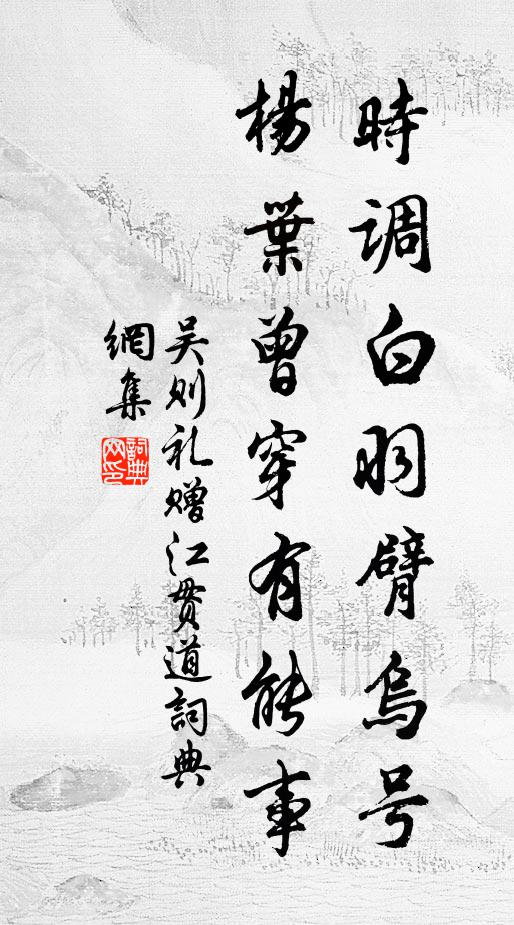 時調白羽臂烏号
楊葉曾穿有能事
吴则礼赠江贯道詞典
網集
詞典网印